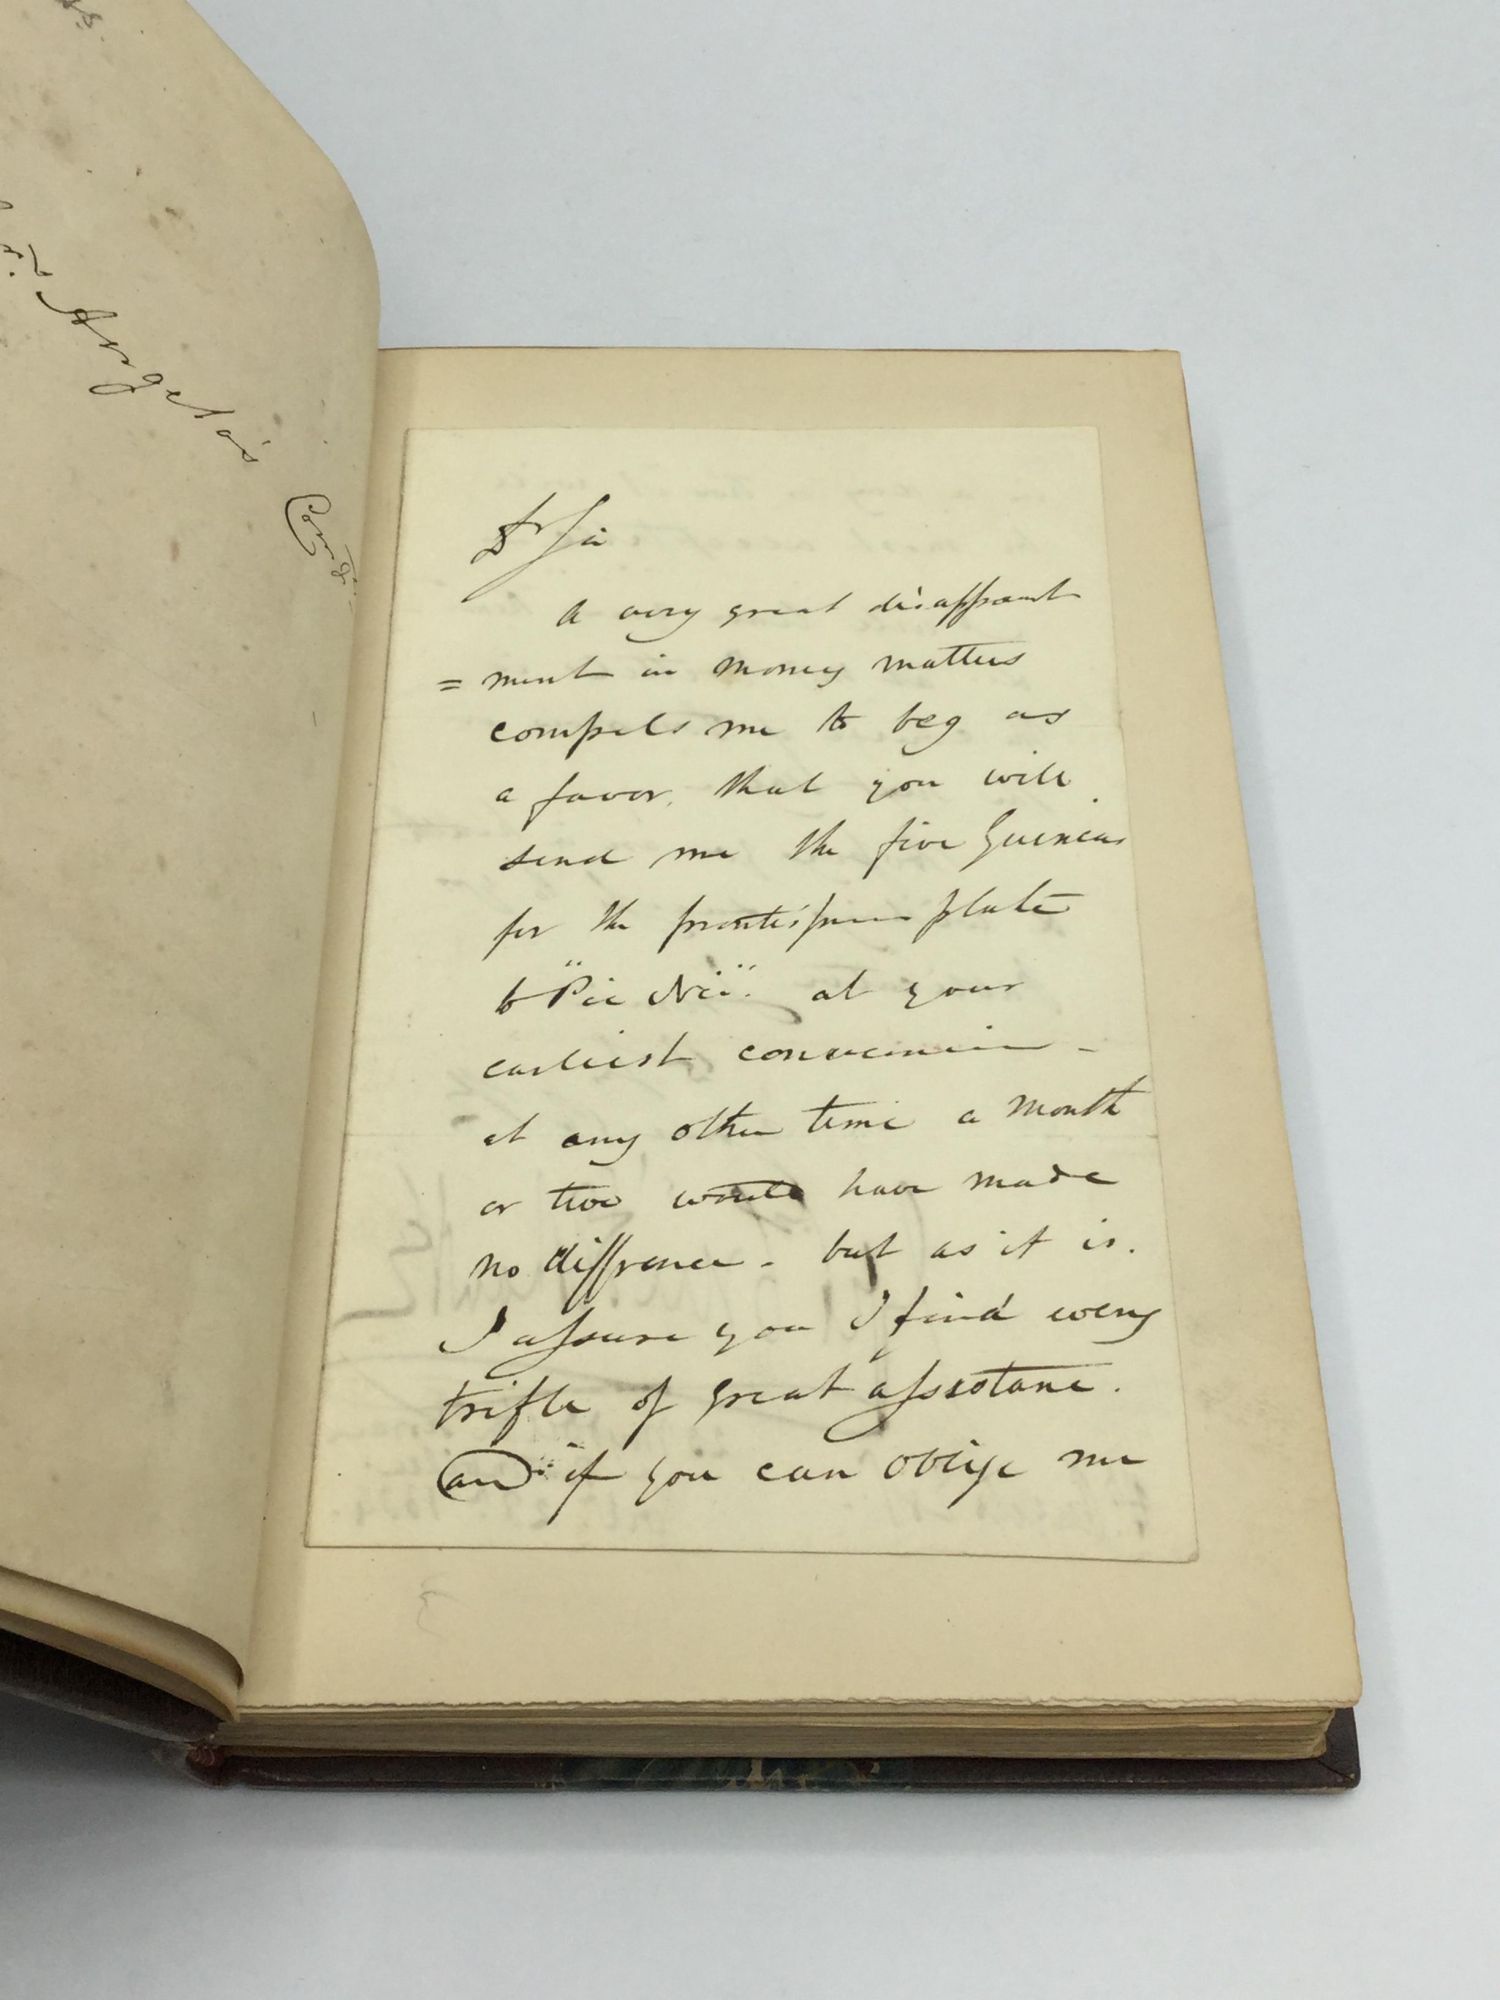 Angelo's
Dr Sir
A very great disappoint
= ment in money matters
compels me to beg as
a favor, that you will
send me the five Guineas
for the frontispiece plate
to "Pic Nic". at your
earliest convenience -
at any other time a month
or two would have made
no diffrence - but as it is.
I assure you I find every
trifle of great assistance.
and if you can oblige me
3